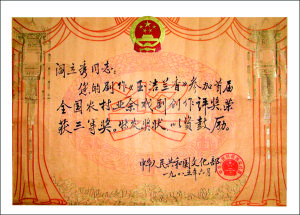 立秀同志：
您的剧作《玉洁兰香》参加首届
全国农村业余戏剧创作评奖荣
获三等奖。特发奖状，以资鼓励。
中华人民共和国文化部
一九八三年六月